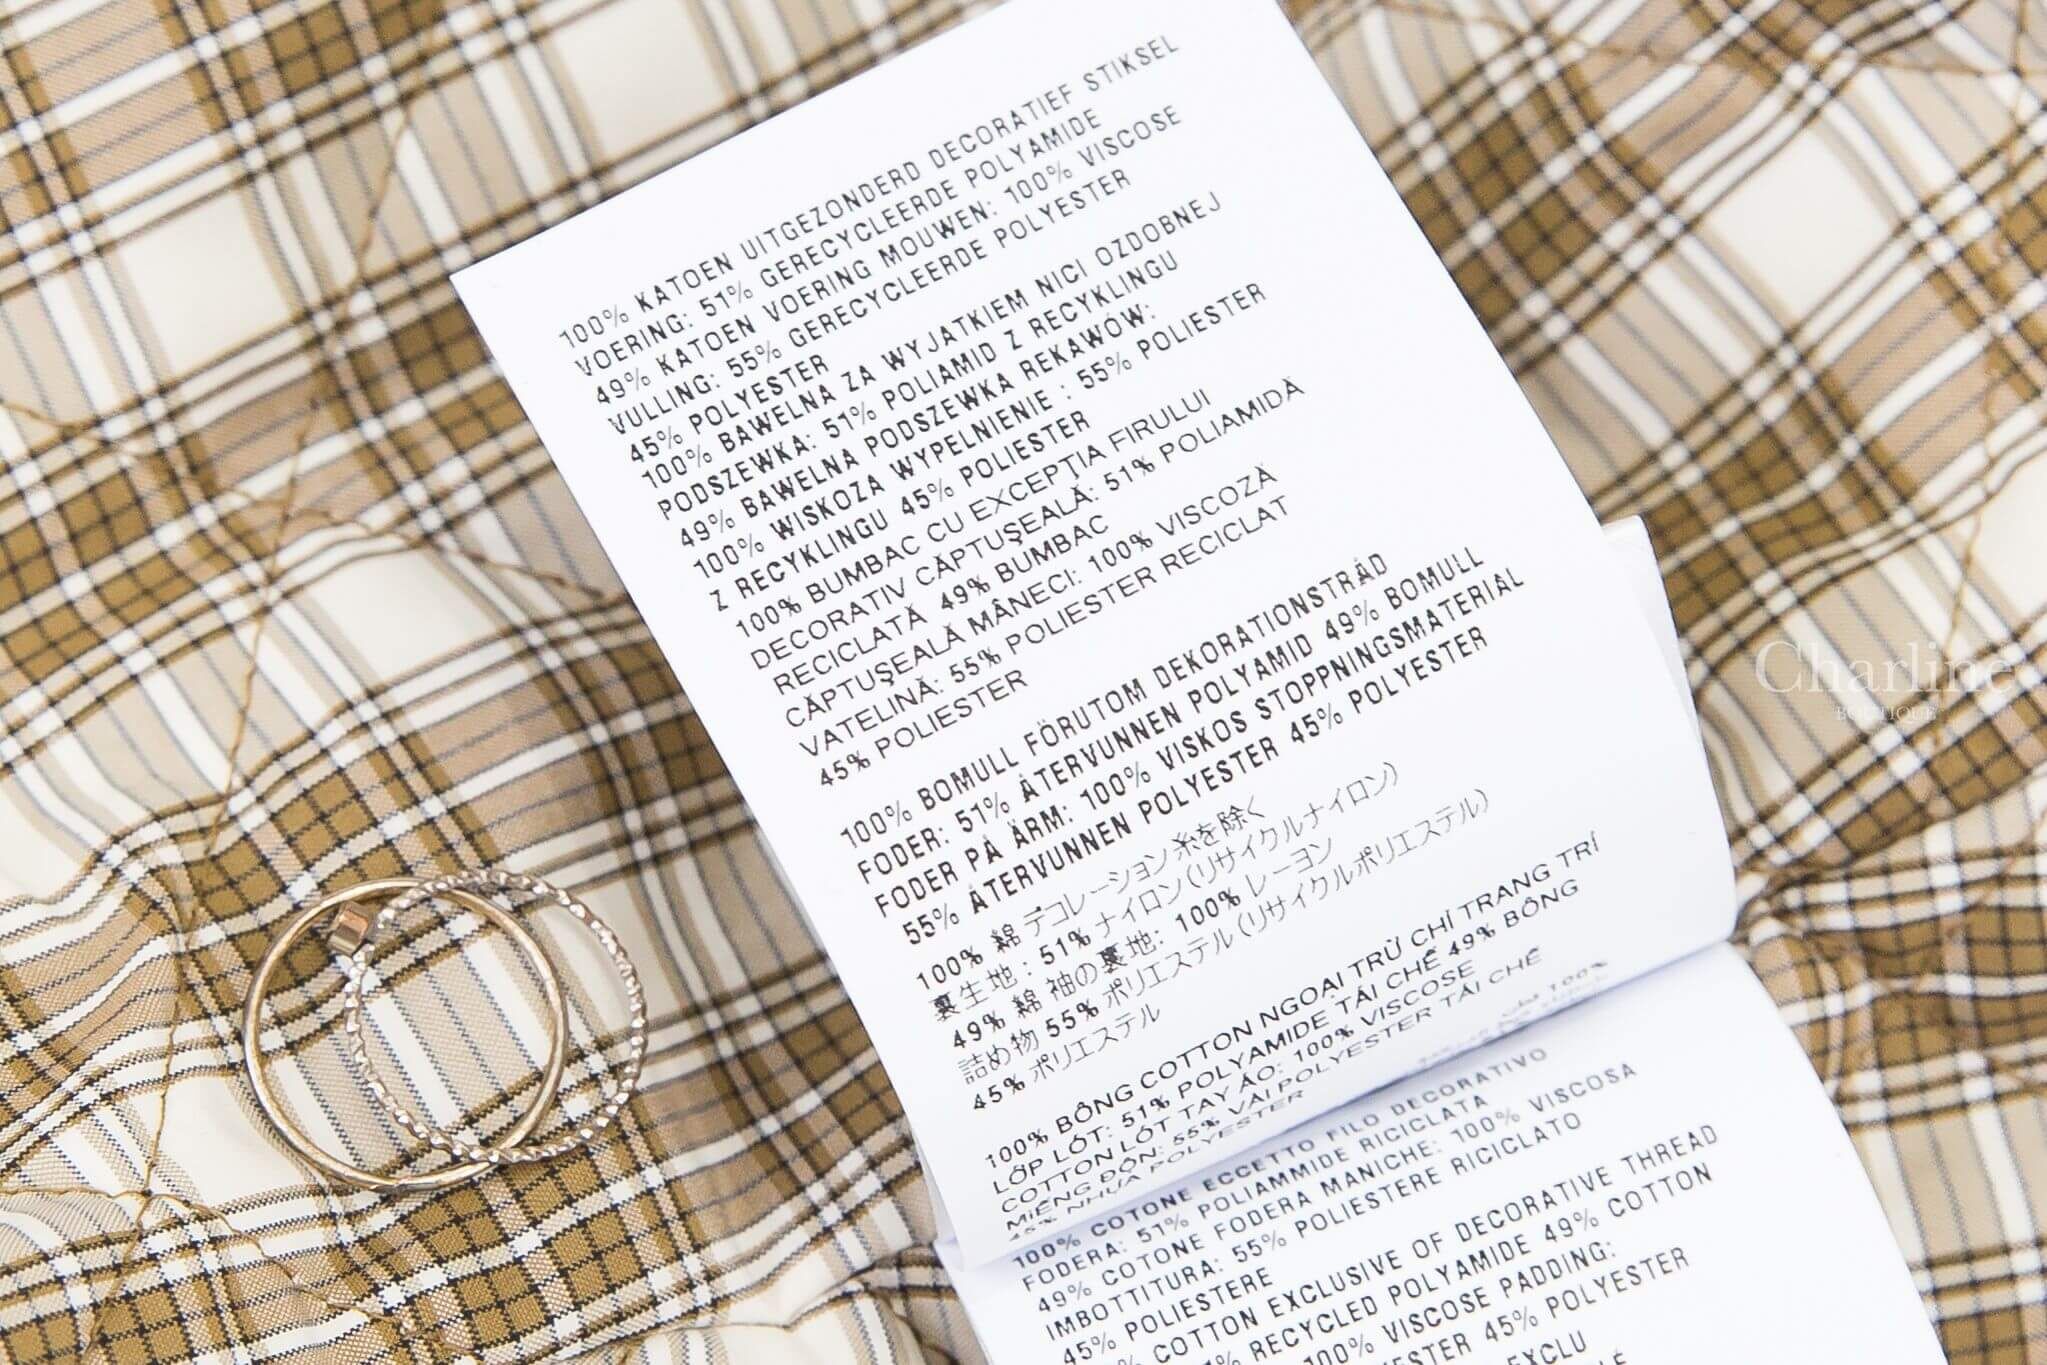 100% KATOEN UITGEZONDERD DECORATIEF STIKSEL
VOERING: 51% GERECYCLEERDE POLYAMIDE
49% KATOEN VOERING MOUWEN: 100% VISCOSE
VULLING: 55% GERECYCLEERDE POLYESTER
45% POLYESTER
100% BAWELNA ZA WYJATKIEM NICI OZDOBNEJ
PODSZEWKA: 51% POLIAMID Z RECYKLINGU
49% BAWELNA PODSZEWKA REKAWÓW:
100% WISKOZA WYPELNIENIE : 55% POLIESTER
Z RECYKLINGU 45% POLIESTER
100% BUMBAC CU EXCEPȚIA FIRULUI
DECORATIV CĂPTUŞEALĂ: 51% POLIAMIDĂ
RECICLATĂ 49% BUMBAC
CĂPTUŞEALĂ MÂNECI: 100% VISCOZĂ
VATELINĂ: 55% POLIESTER RECICLAT
45% POLIESTER
100% BOMULL FÖRUTOM DEKORATIONSTRÅD
FODER: 51% ÅTERVUNNEN POLYAMID 49% BOMULL
FODER PÅ ÄRM: 100% VISKOS STOPPNINGSMATERIAL
55% ÅTERVUNNEN POLYESTER 45% POLYESTER
100% 綿 デコレーション 糸を除く
裏生地 : 51% ナイロン (リサイクルナイロン)
49% 綿 袖の裏地: 100% レーヨン
詰め物 55% ポリエステル (リサイクルポリエステル)
45% ポリエステル
100% BÔNG COTTON NGOẠI TRỪ CHỈ TRANG TRÍ
LỚP LÓT: 51% POLYAMIDE TÁI CHẾ 49% BÔNG
COTTON LÓT TAY ÁO: 100% VISCOSE
MIẾNG ĐỘN: 55% VẢI POLYESTER TÁI CHẾ
45% NHỰA POLYESTER
100% COTONE ECCETTO FILO DECORATIVO
FODERA: 51% POLIAMMIDE RICICLATA
49% COTONE FODERA MANICHE: 100% VISCOSA
IMBOTTITURA: 55% POLIESTERE RICICLATO
45% POLIESTERE
COTTON EXCLUSIVE OF DECORATIVE THREAD
RECYCLED POLYAMIDE 49% COTTON
100% VISCOSE PADDING:
45% POLYESTER
EXCLU
Charline
BOUTIQUE